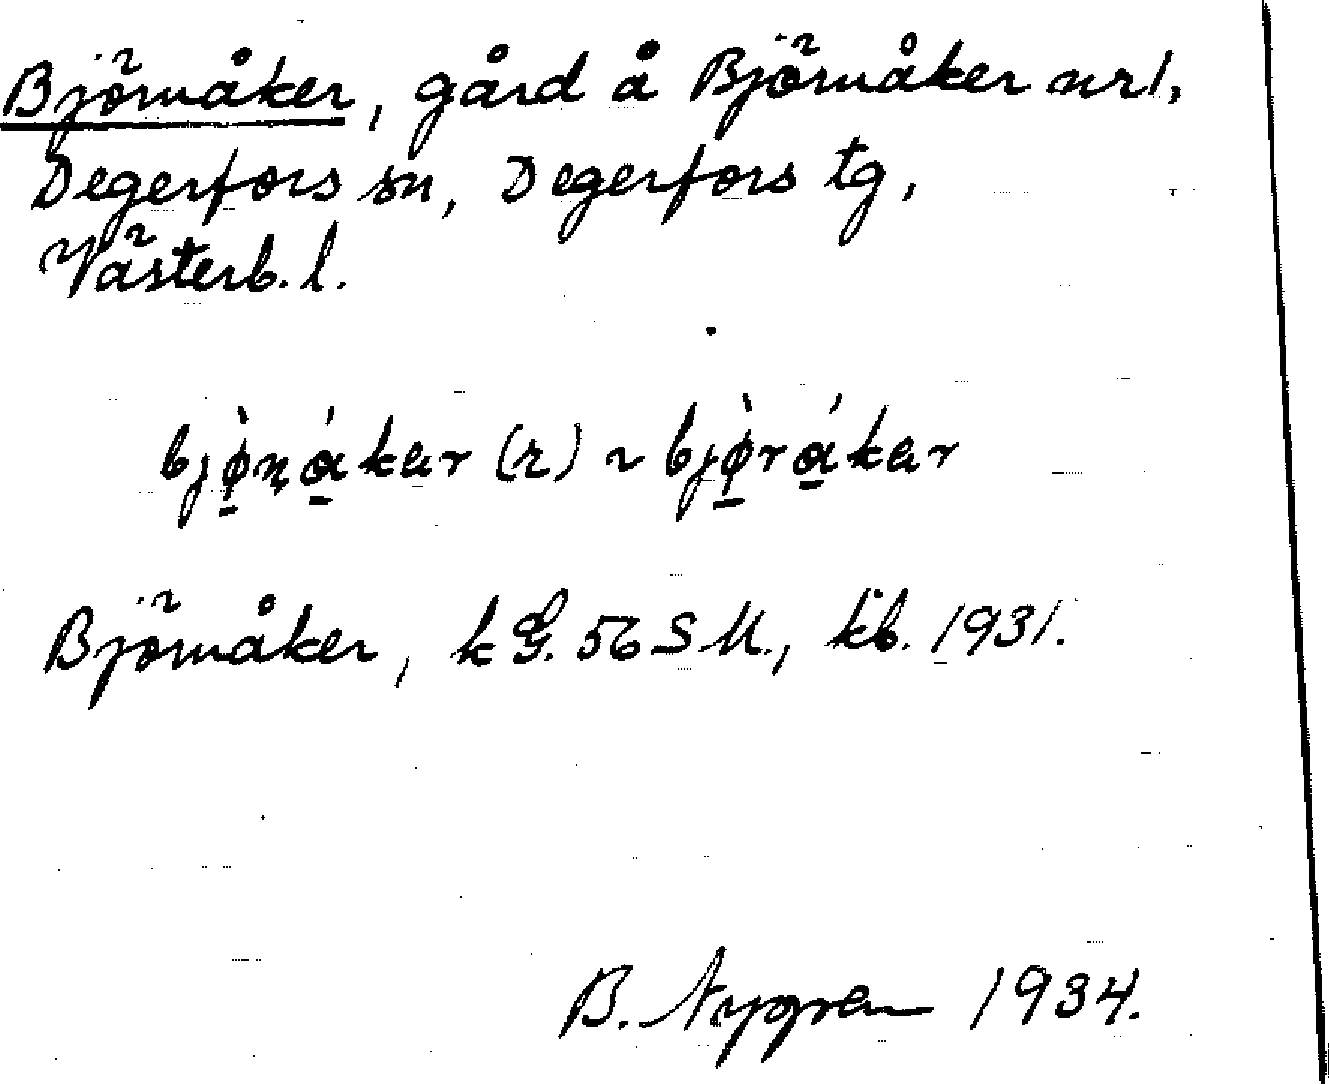 Björnåker, gård å Björnåker nr 1,
Degerfors sn, Degerfors tg,
Västerb. l.
bjø̱̀ɳɑ̱́kar (r) ~ bjø̱̀rɑ̱́kar
Björnåker, k G. 56 S M., kb. 1931.
B. Nygren 1934.